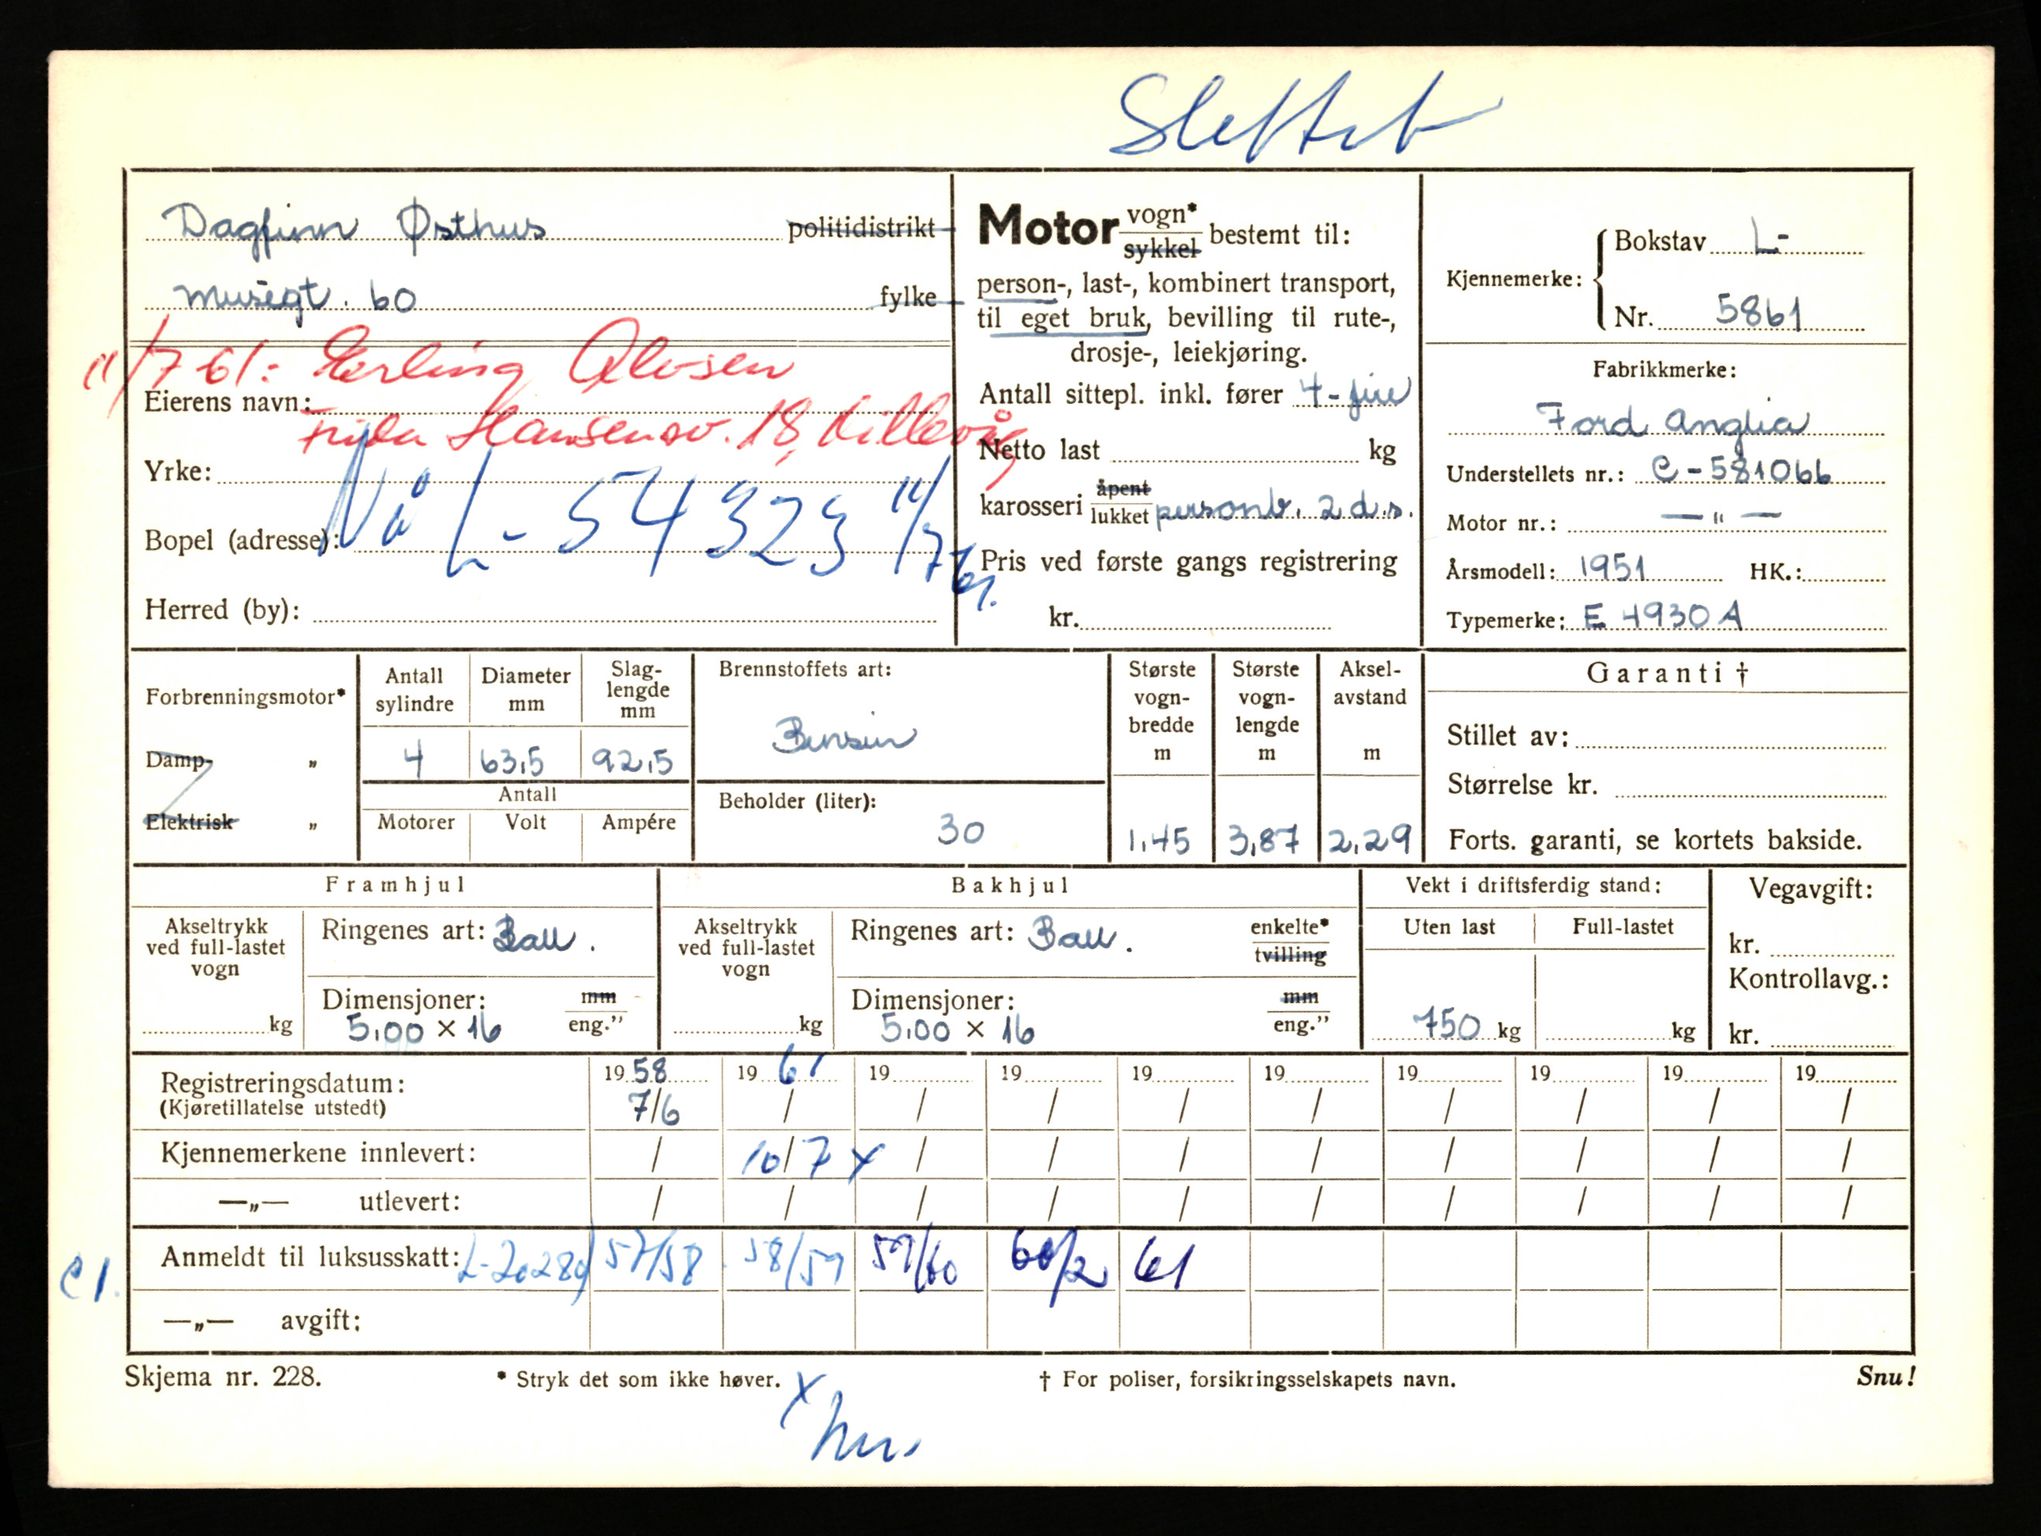 Slettet
Dagfinn Østhus politidistrikt
musegt. 60 fylke
11/7-61: Erling Olsen
Eierens navn:
Frida Hansensv. 18, Hillevåg
Yrke:
Nå L-54323 11/7 61.
Bopel (adresse):
Herred (by):
Motor vogn* sykkel bestemt til:
person-, last-, kombinert transport,
til eget bruk, bevilling til rute-,
drosje-, leiekjøring.
Antall sittepl. inkl. fører 4-fire
Netto last kg
karosseri åpent lukket personb. 2 d.s.
Pris ved første gangs registrering
kr.
Kjennemerke: Bokstav L-
Nr. 5861
Fabrikkmerke:
Ford Anglia
Understellets nr.: C-581066
Motor nr.: — " —
Årsmodell: 1951 HK.:
Typemerke: E 4930 A
Forbrenningsmotor*
Damp- „
Elektrisk „
Antall sylindre Diameter mm Slaglengde mm
4 63,5 92,5
Antall
Motorer Volt Ampére
Brennstoffets art:
Bensin
Beholder (liter):
30
Største vognbredde m
1.45
Største vognlengde m
3,87
Akselavstand m
2,29
Garanti †
Stillet av:
Størrelse kr.
Forts. garanti, se kortets bakside.
Framhjul
Akseltrykk ved full-lastet vogn kg
Ringenes art: Ball.
Dimensjoner: mm eng."
5,00 × 16
Bakhjul
Akseltrykk ved full-lastet vogn kg
Ringenes art: Ball. enkelte* tvilling
Dimensjoner: mm eng."
5,00 × 16
Vekt i driftsferdig stand:
Uten last Full-lastet
750 kg kg
Vegavgift:
kr.
Kontrollavg.:
kr.
Registreringsdatum: 1958 1961 19 19 19 19 19 19 19 19
(Kjøretillatelse utstedt) 7/6 / / / / / / / / /
Kjennemerkene innlevert: / 10/7 x / / / / / / / /
—„— utlevert: / / / / / / / / / /
C1. Anmeldt til luksusskatt: L-20289 57/58 58/59 59/60 60/2 61
—„— avgift:
Skjema nr. 228. * Stryk det som ikke høver. † For poliser, forsikringsselskapets navn. Snu!
x